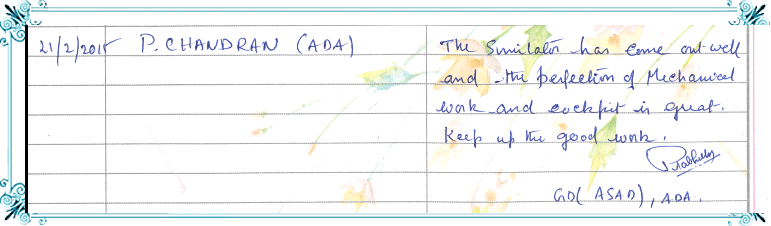 21/2/2015 P. CHANDRAN (ADA) The Simulator has come out well
and the perfection of Mechanical
work and cockpit is great.
Keep up the good work.
GD( ASAD), ADA.